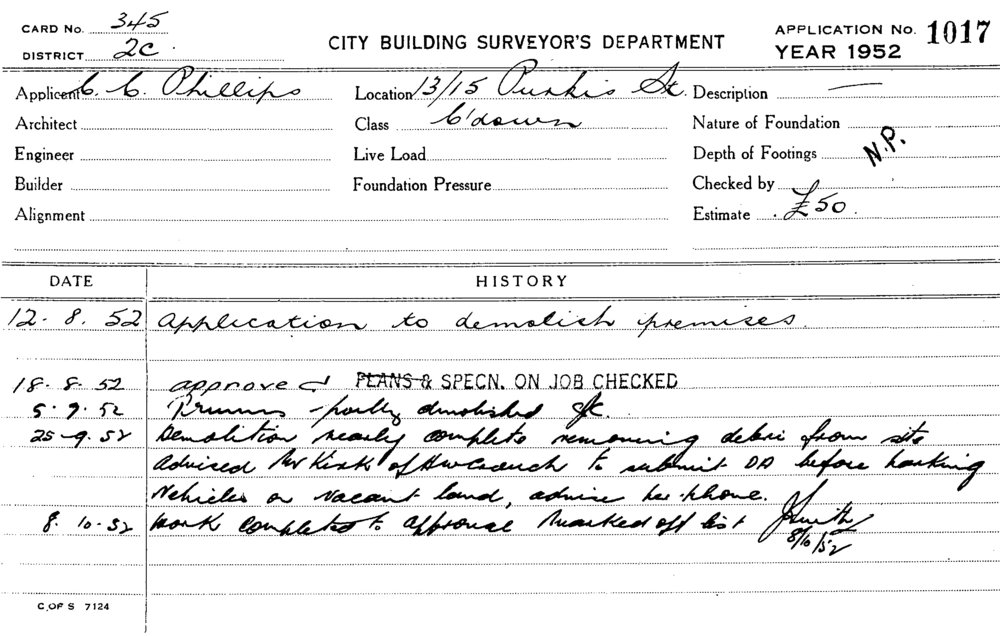 CARD No. 345
DISTRICT 2C
CITY BUILDING SURVEYOR'S DEPARTMENT
APPLICATION No. 1017
YEAR 1952
Applicant C. C. Phillips
Location 13/15 Purkis St.
Description —
Architect
Class C'down
Nature of Foundation
Engineer
Live Load
Depth of Footings
N.P.
Builder
Foundation Pressure
Checked by
Alignment
Estimate £50.
DATE HISTORY
12. 8. 52 application to demolish premises.
18. 8. 52 approved PLANS & SPECN. ON JOB CHECKED
5. 9. 52 partly demolished
25-9. 52 Demolition nearly complete removing debri from site
advised Mr Kirk of to submit DA before parking
Vehicles on vacant land, advise per phone.
8. 10. 52 work completed to approval marked off list JSmith
8/10/52
C. OF S 7124